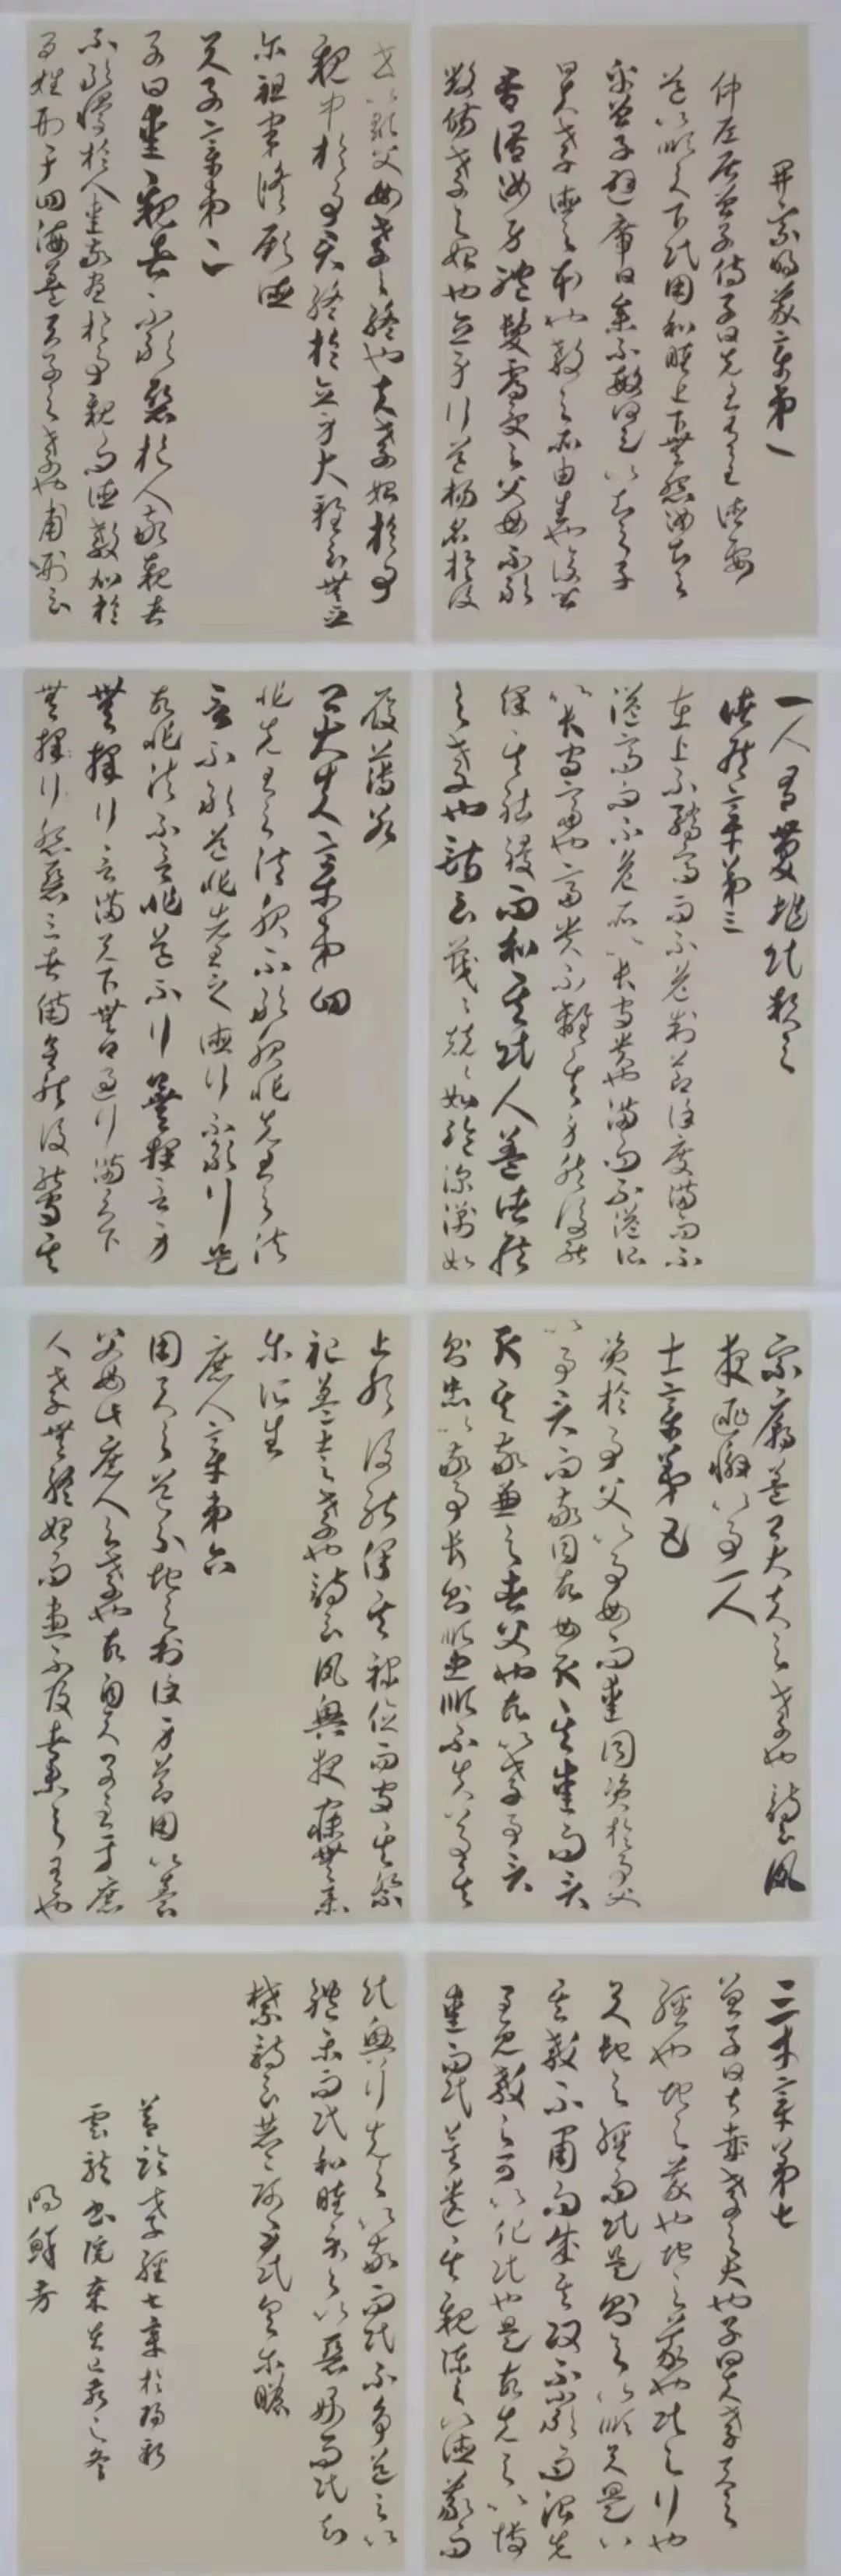 開宗明義章第一
仲尼居曾子侍子曰先王有至德要
道以順天下民用和睦上下無怨汝知之
乎曾子避席曰參不敏何足以知之子
曰夫孝德之本也教之所由生也復坐
吾語汝身體髮膚受之父母不敢
毀傷孝之始也立身行道揚名於後
世以顯父母孝之終也夫孝始於事
親中於事君終於立身大雅云無
尔祖聿脩厥德
天子章第二
子曰愛親者不敢惡於人敬親者
不敢慢於人愛敬盡於事親而德教加於
百姓刑于四海蓋天子之孝也甫刑云
一人有慶兆民賴之
諸侯章第三
在上不驕高而不危制節謹度滿而不
溢高而不危所以長守貴也滿而不溢所
以長守富也富貴不離其身然後能
保其社稷而和其民人蓋諸侯
之孝也詩云戰戰兢兢如臨深淵如
履薄冰
卿大夫章第四
非先王之法服不敢服非先王之法
言不敢道非先王之德行不敢行是
故非法不言非道不行口無擇言身
無擇行言滿天下無口過行滿天下
無擇行怨惡三者備矣然後能守其
宗廟蓋卿大夫之孝也詩云夙
夜匪懈以事一人
士章第五
資於事父以事母而愛同資於事父
以事君而敬同故母取其愛而君
取其敬兼之者父也故以孝事君
則忠以敬事長則順忠順不失以事其
上然後能保其祿位而守其祭
祀蓋士之孝也詩云夙興夜寐無忝
尔所生
庶人章第六
用天之道分地之利謹身節用以養
父母此庶人之孝也故自天子至于庶
人孝無終始而患不及者未之有也
三才章第七
曾子曰甚哉孝之大也子曰夫孝天之
經也地之義也地之義也民之行也
天地之經而民是則之以順天是以
其教不肅而成其政不嚴而治先
王見教之可以化民也是故先之以博
愛而民莫遺其親陳之以德義而
民興行先之以敬而民不爭道之以
禮樂而民和睦示之以惡好而民知
禁詩云赫赫師尹民具尔瞻
孝經七章於
雲龍書院